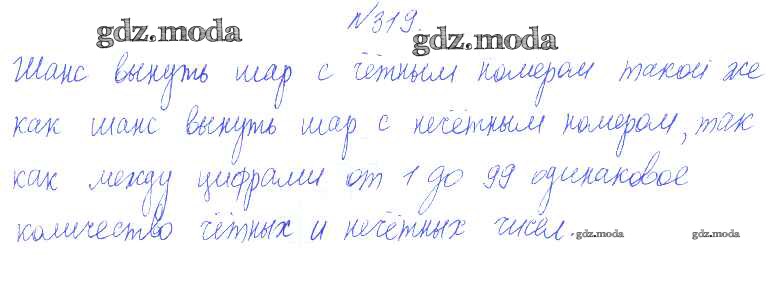 №319.
gdz.moda
gdz.moda
Шанс вынуть шар с чётным номером такой же
как шанс вынуть шар с нечётным номером, так
как между цифрами от 1 до 99 одинаковое
количество чётных и нечётных чисел.
gdz.moda
gdz.moda